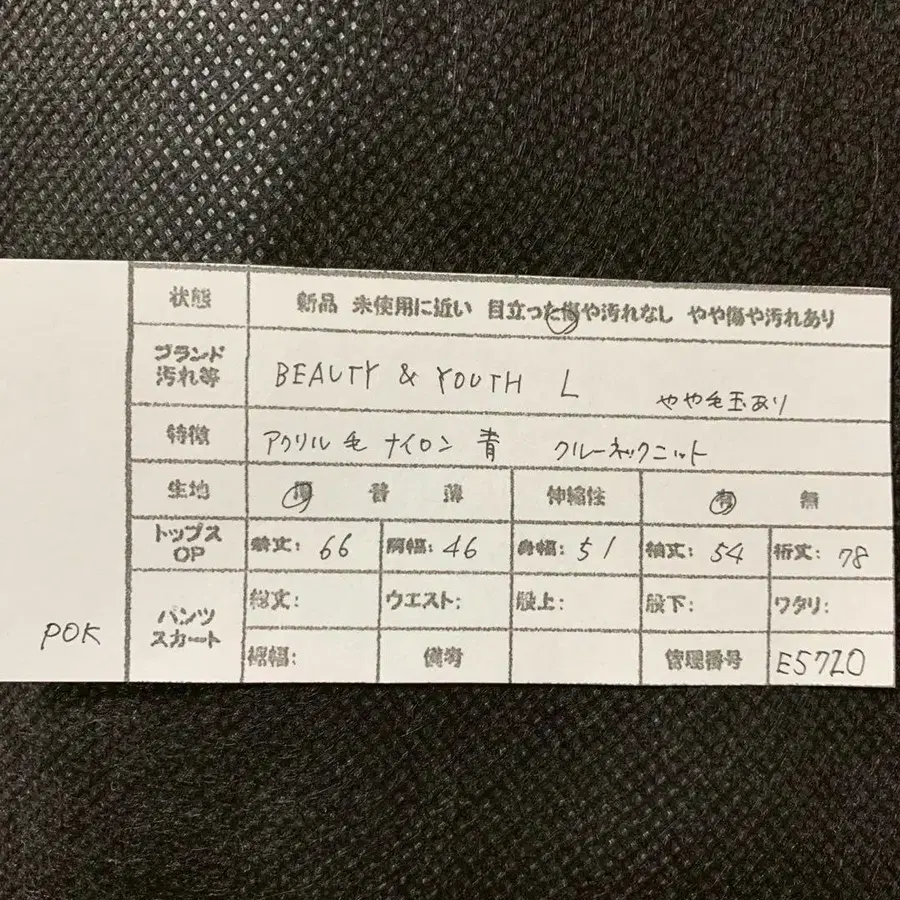 状態 新品 未使用に近い 目立った傷や汚れなし やや傷や汚れあり
ブランド
汚れ等 BEAUTY & YOUTH L やや毛玉あり
特徴 アクリル 毛 ナイロン 青 クルーネックニット
生地 厚 普 薄 伸縮性 有 無
トップス
OP 着丈: 66 肩幅: 46 身幅: 51 袖丈: 54 裄丈: 78
パンツ
スカート 総丈: ウエスト: 股上: 股下: ワタリ:
裾幅: 備考 管理番号 E5720
POK